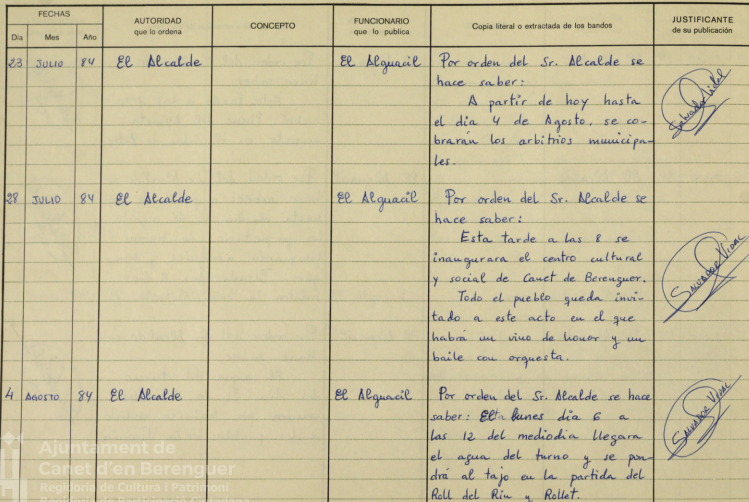 FECHAS
Dia Mes Año
AUTORIDAD
que lo ordena
CONCEPTO
FUNCIONARIO
que lo publica
Copia literal o extractada de los bandos
JUSTIFICANTE
de su publicación
23 JULIO 84 El Alcalde El Alguacil Por orden del Sr. Alcalde se
hace saber:
A partir de hoy hasta
el dia 4 de Agosto, se co-
brarán los arbitrios municipa-
les.
Salvador Vidal
28 JULIO 84 El Alcalde El Alguacil Por orden del Sr. Alcalde se
hace saber:
Esta tarde a las 8 se
inaugurara el centro cultural
y social de Canet de Berenguer.
Todo el pueblo queda invi-
tado a este acto en el que
habrá un vino de honor y un
baile con orquesta.
Salvador Vidal
4 AGOSTO 84 El Alcalde El Alguacil Por orden del Sr. Alcalde se hace
saber: El lunes dia 6 a
las 12 del mediodia llegara
el agua del turno y se pon
drá al tajo en la partida del
Roll del Riu y Rollet.
Salvador Vidal
Ajuntament de
Canet d'en Berenguer
Regidoria de Cultura i Patrimoni